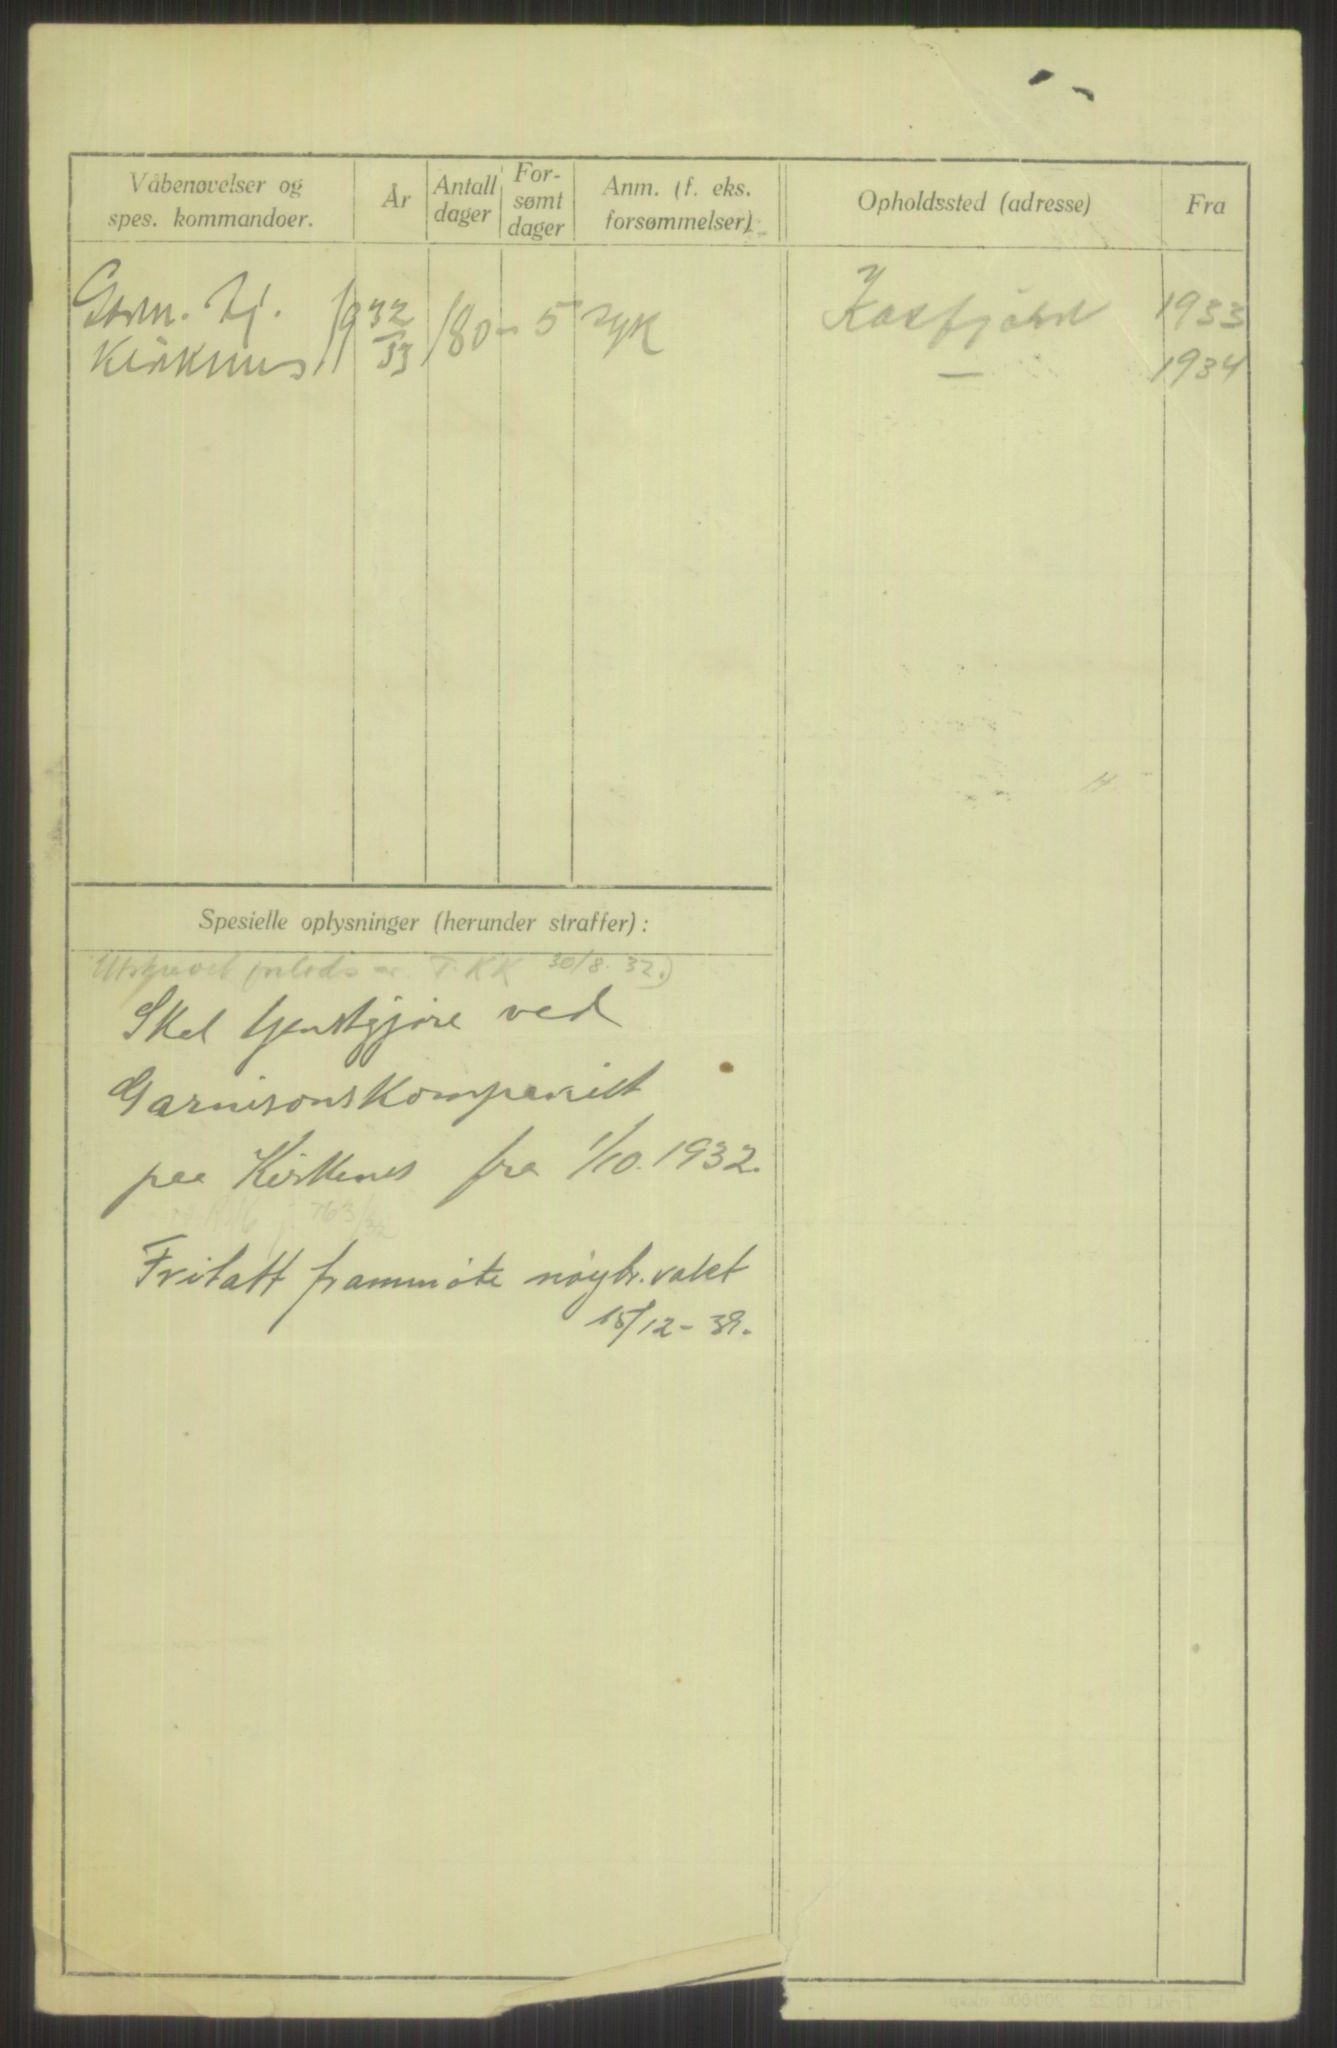 Våbenøvelser og
spes. kommandoer.
År
Antall
dager
For-
sømt
dager
Anm. (f. eks.
forsømmelser)
Opholdssted (adresse)
Fra
Garn. tj.
Kirknes
1932/33
180
- 5
syk
Kasfjord
1933
—
1934
Spesielle oplysninger (herunder straffer):
T.KK 30/8. 32.)
Skal tjenstgjøre ved
Garnisonskompaniet
paa Kirkenes fra 1/10. 1932.
763/32
Fritatt frammöte nöytr.vakt
15/12-39.